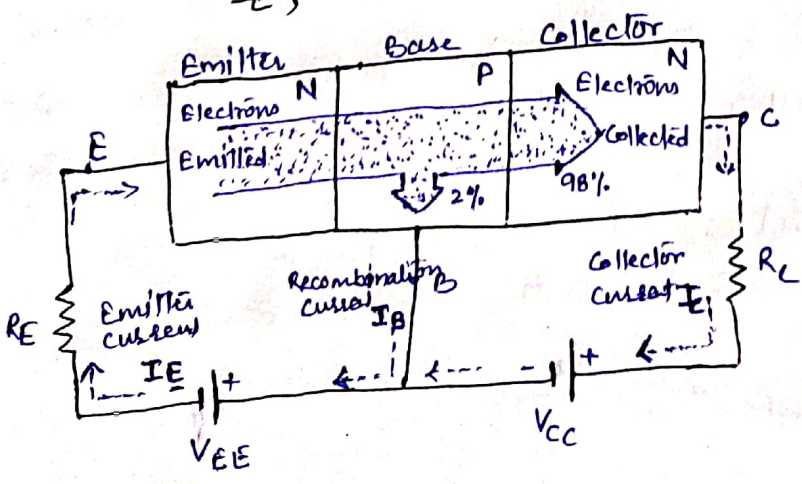 Emitter
Base
Collector
N
P
N
Electrons
Emitted
Electrons
Collected
2%
98%
E
C
B
RE
Emitter
current
IE
Recombination
current
IB
Collector
current IC
RL
+
-
+
VEE
VCC